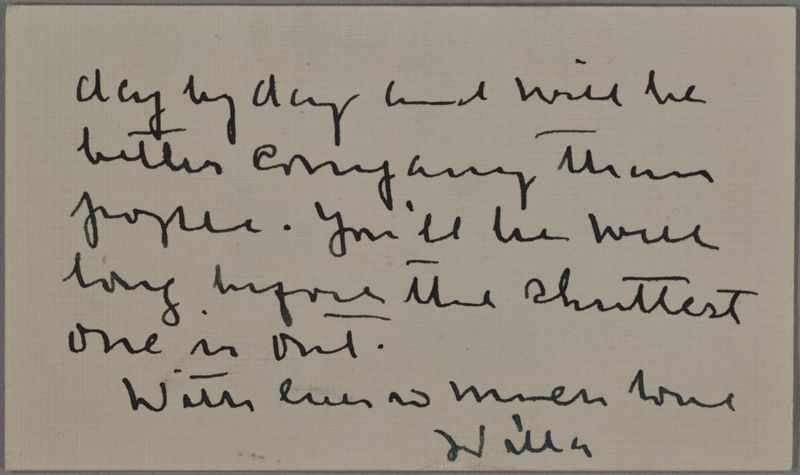 day by day and will be
better company than
people. You'll be well
long before the shuttest
one is out.
With ever so much love
Willa